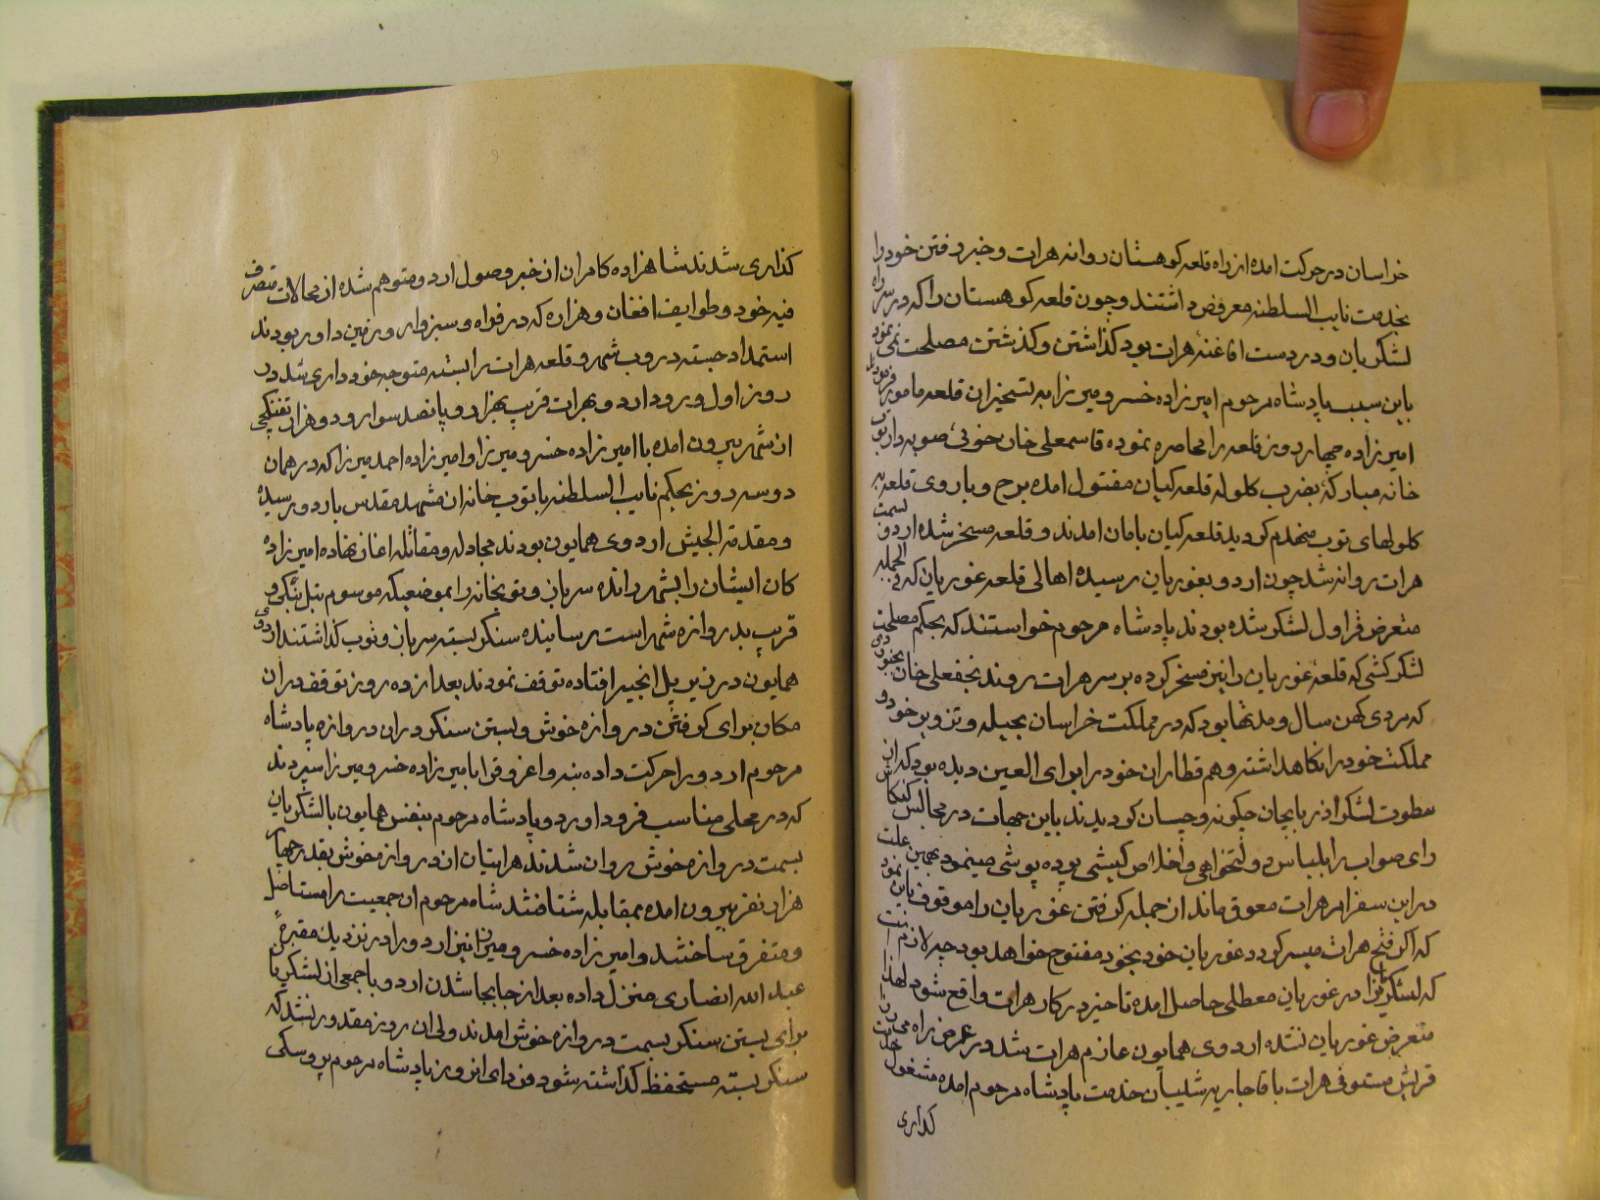 خراسان در حرکت امده از راه قلعه کوهستان روانه هرات و خبر رفتن خود را
بخدمت نایب السلطنه معروض داشتند و چون قلعه کوهستان را که در سر راه
لشکریان و در دست افاغنهٔ هرات بود گذاشتن و گذشتن مصلحت نمی نمود
باین سبب پادشاه مرحوم امیرزاده خسرو میرزا به تسخیر ان قلعه مامور فرمود
امیرزاده چهار روز قلعه را محاصره نموده قاسمعلی خان خوئی صوبه دار توپ
خانه مبارکه بضرب گلوله قلعه کیان مفتول امده برج و باروی قلعه به
گلولهای توپ منهدم گردید قلعه کیان بامان امدند و قلعه مسخر شده اردو بسمت
هرات روانه شد چون اردو بغوریان رسیده اهالی قلعه غوریان که فی الجمله
متعرض قراول لشکر شده بودند پادشاه مرحوم خواستند که بحکم مصلحت
لشکر کشی که قلعهٔ غوریان را نیز مسخر کرده بر سر هرات روند نجفعلی خان بجنوردی
که مردی کهن سال و مدتها بود که در مملکت خراسان بحیله و تزویر خود و
مملکت خود را نگاه داشته و هم قطاران خود را برای العین دیده بود که از
سطوت لشکر اذربایجان چگونه و چسان گردیدند باین جهات در مجالس کنکاش
رای صواب را بلباس دولتخواهی و اخلاص کیشی پرده پوشی مینمود بهمین علت
در این سفر امر هرات معوق ماند از جمله گرفتن غوریان را موقوف باین نمود
که اگر فتح هرات میسر گردد غوریان خود بخود مفتوح خواهد بود چه لازم است
که لشکر را در غوریان معطلی حاصل امده تاخیر در کار هرات واقع شود لهذا
متعرض غوریان نشده اردوی همایون عازم هرات شد در عرض راه
قرایش مستوفی هرات با قاجاریه شلیبان خدمت پادشاه مرحوم امده مشغول خدمت
گذاری
گذاری شدند شاهزاده کامران از خبر وصول اردو متوهم شده از محالات متصرف
فیه خود و طوایف افغان و هزاره که در فراه و سبزوار و زمین داور بودند
استمداد جسته دروب شهر و قلعه هرات را بسته متوجه خودداری شد در
روز اول ورود اردو بهرات قریب بهزار و پانصد سوار و دو هزار تفنگچی
از شهر بیرون امده با امیرزاده خسرو میرزا و امیرزاده احمد میرزا که در همان
دو سه روز بحکم نایب السلطنه با توپ خانه از مشهد مقدس باردو رسیده
و مقدمة الجیش اردوی همایون بودند مجادله و مقاتله اغاز نهاده امیرزاده
کان ایشان را بشهر رانده سرباز و توپخانه را بموضعیکه موسوم بتل بنگی و
قریب بدروازه شهر است رسانیده سنگر بسته سرباز و توپ گذاشتند اردوی
همایون در زیر پل انجیر افتاده توقف نمودند بعد از ده روز توقف در ان
مکان برای گرفتن دروازه خوش و بستن سنگر در ان دروازه پادشاه
مرحوم اردو را حرکت داده بنه و اغروق را بامیرزاده خسرو میرزا سپردند
که در محلی مناسب فرود اورد و پادشاه مرحوم بنفس همایون با لشکریان
بسمت دروازه خوش روان شدند هراتیان از دروازه خوش بقدر چهار
هزار نفر بیرون امده بمقابله شتافتند شاه مرحوم ان جمعیت را مستاصل
و متفرق ساختند و امیرزاده خسرو میرزا نیز اردو را در نزدیک مقبرهٔ
عبد الله انصاری منزل داده بعد از جابجا شدن اردو با جمعی از لشکریان
برای بستن سنگر بسمت دروازه خوش امدند ولی ان روز مقدور نشد که
سنگر بسته مستحفظ گذاشته شود فردای انروز پادشاه مرحوم